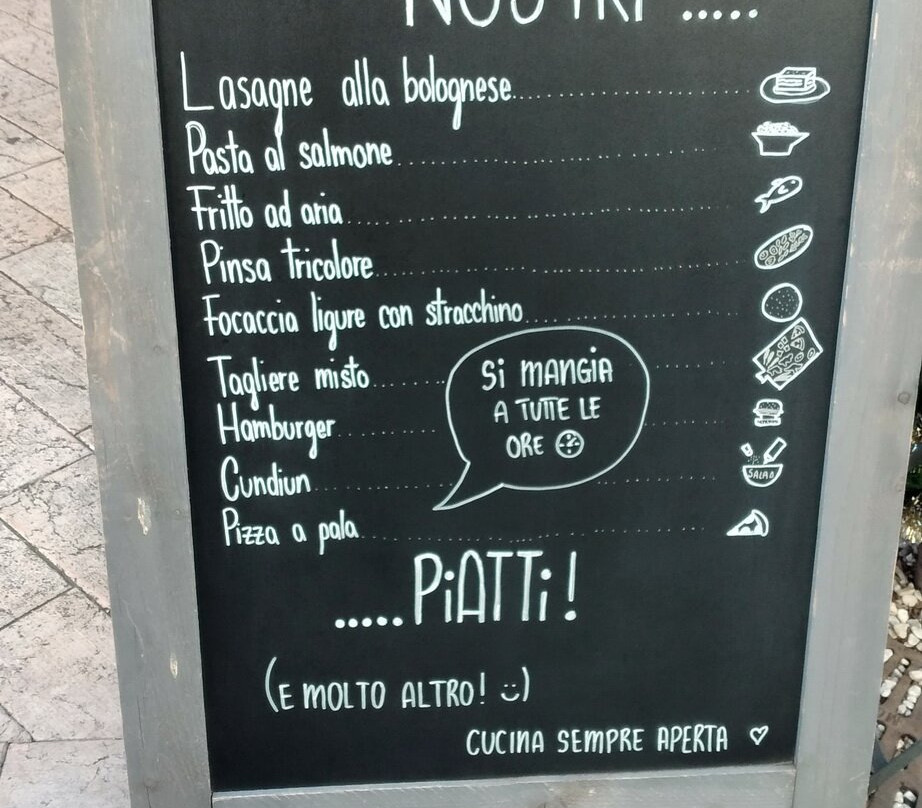 NOSTRI .....
Lasagne alla bolognese
Pasta al salmone
Fritto ad aria
Pinsa tricolore
Focaccia ligure con stracchino
Tagliere misto
Hamburger
Cundiun
Pizza a pala
Si MANGIA
A TUTTE LE
ORE
SALAD
.....PiATTi!
(E MOLTO ALTRO! :))
CUCINA SEMPRE APERTA ♡